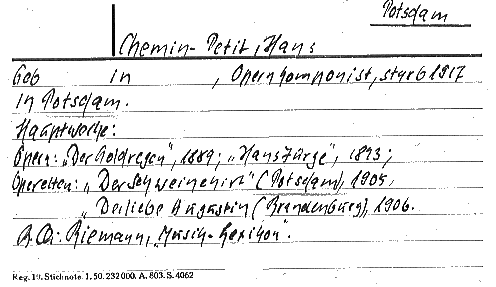 Potsdam
Chemin-Petit, Hans
Geb in , Opernkomponist, starb 1917
in Potsdam.
Hauptwerke:
Opern: „Der Goldregen", 1889; „Hans Jürge", 1893;
Operetten: „Der Schweinehirt" (Potsdam), 1905,
„Der liebe Augustin (Brandenburg), 1906.
Riemann, „Musik-Lexikon".
Reg. 19. Stichnote. 1. 50. 232000. A. 803. S. 4062